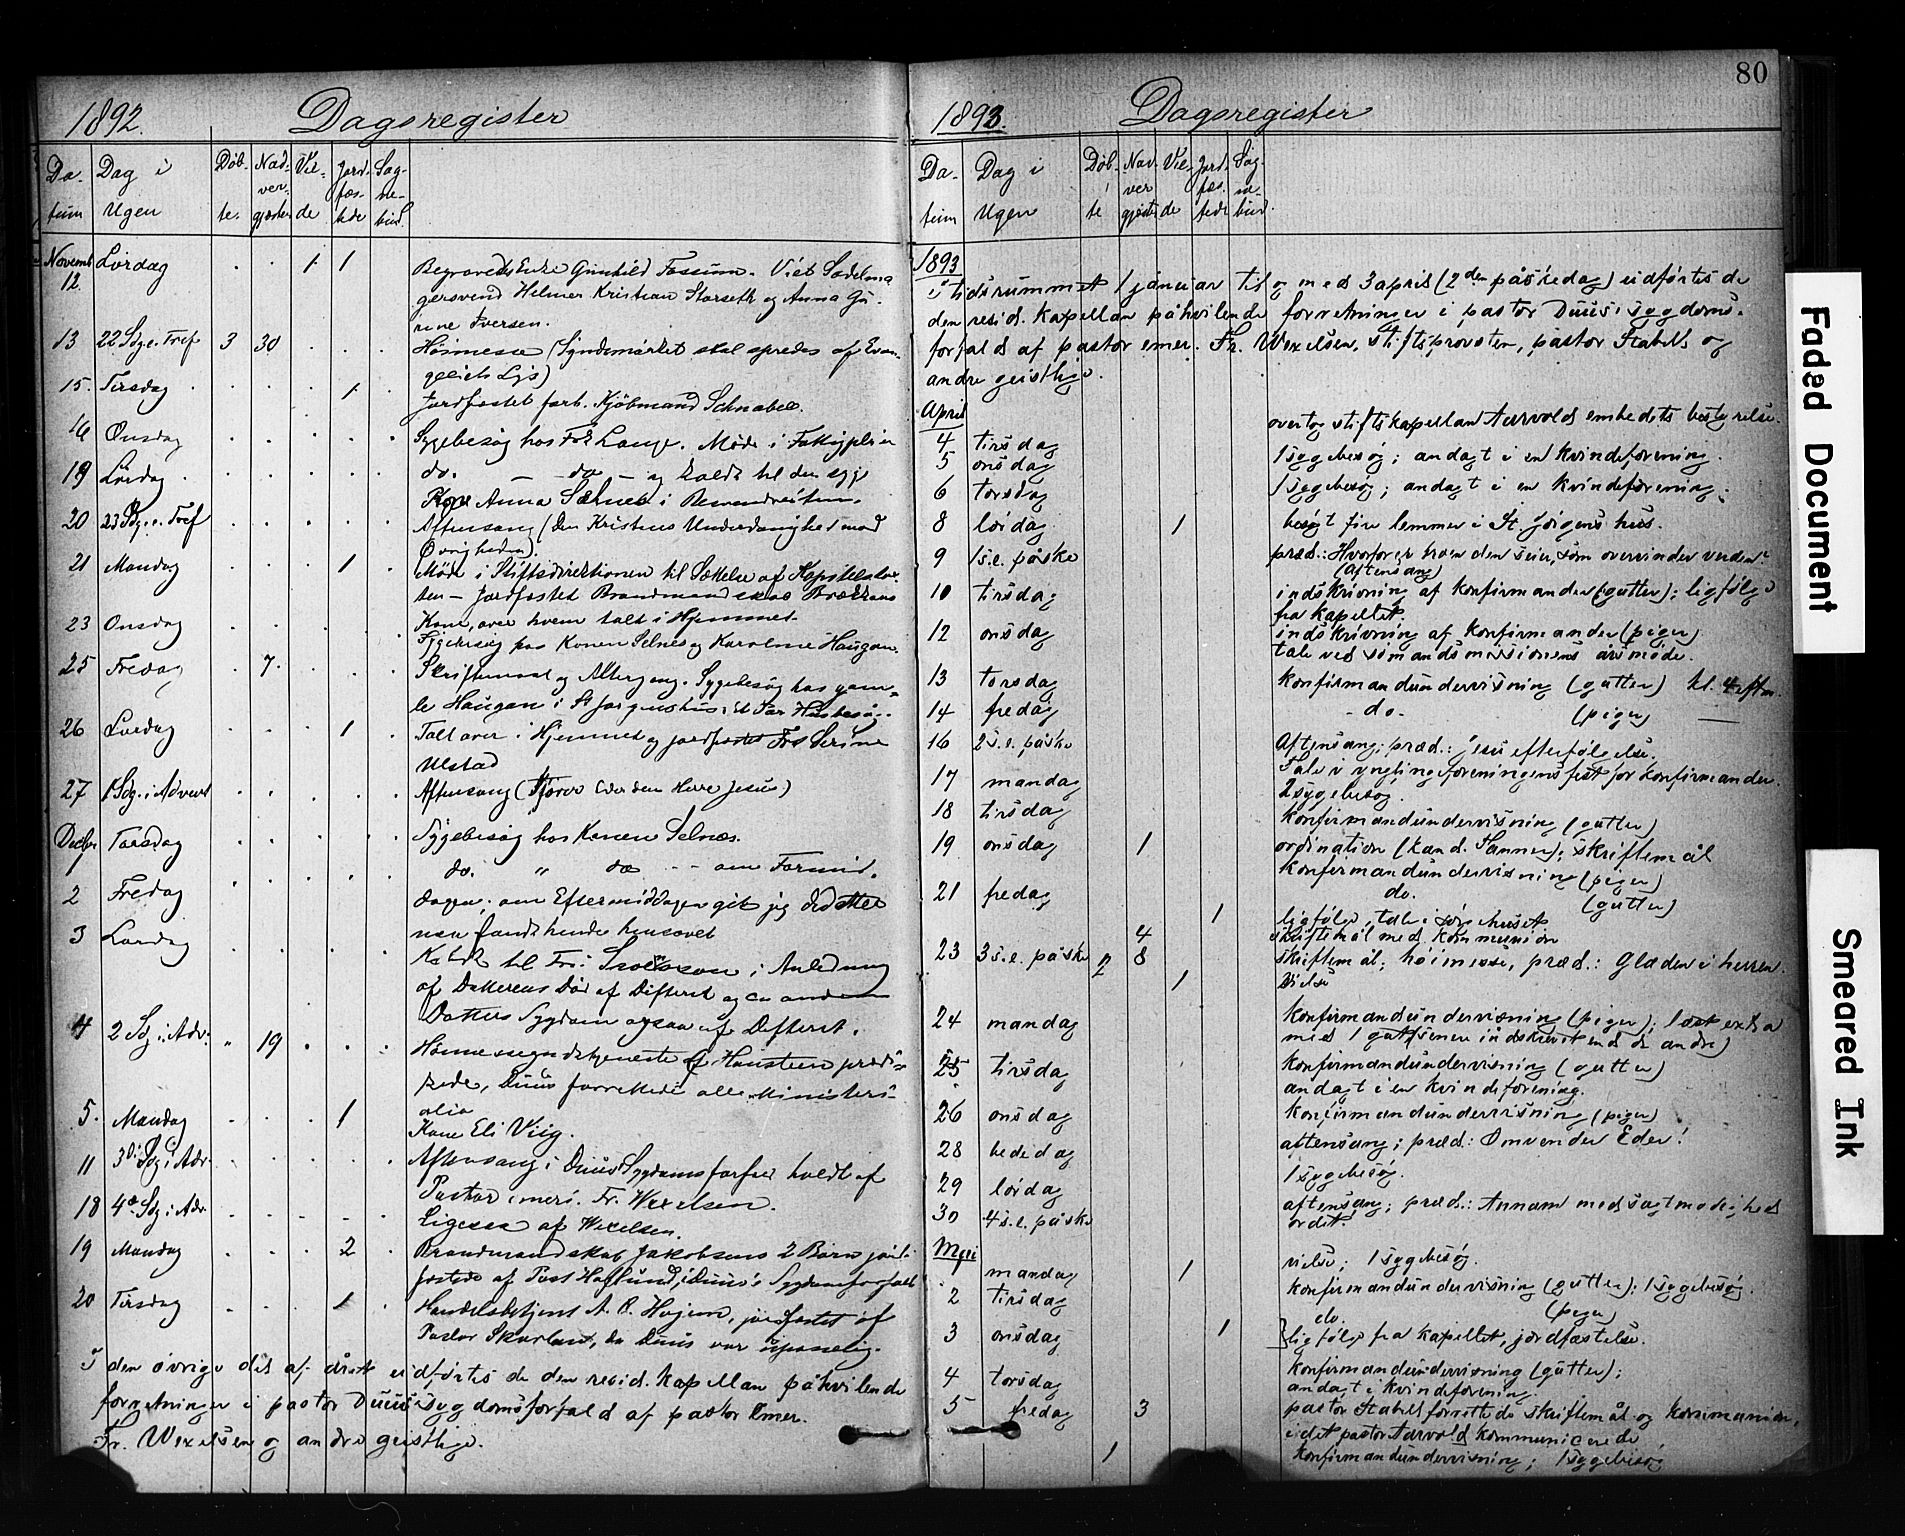 80
1892. Dagsregister
Da-tum Dag i Ugen Døb-te. Nad-ver-gjester Vi-ede Jord-fæs-tede Sog-ne-bud
Novemb 12. Lørdag . . 1 1 Begravedes Enke Gunhild Fossum. Viet Sadelma
gersvend Helmer Kristian Storseth og Anna Gu-
rine Iversen.
13 22 Sdg. e. Tref 3 30 . . . Høimesse (Syndemørket skal spredes af Evan-
geliets Lys)
15. Tirsdag . . . 1 . Jordfæstet forh. Kjøbmand Schnabel.
16 Onsdag . . . . . Sygebesøg hos Lange. Møde i
19 Lørdag . . . . . do. — do — og kaldt til den syge
Kone Anna Selnes i
20 23 Sdg. e. Tref . . . . . Aftensang (Den Kristnes Underdanighed mod
Øvrigheden).
21 Mandag . . . 1 . Møde i Stiftsdirektionen til
— Jordfæstet Brandmandskab
Kone, over hvem talt i Hjemmet.
23 Onsdag . . . . . Sygebesøg hos Konen Selnes og Karoline Haugan.
25 Fredag . 7. . . . Skriftemaal og Altergang. Sygebesøg hos gam-
le Haugan i St Jørgenshus
26 Lørdag . . . 1 . Talt over i Hjemmet og jordfæstet Serine
Ulstad
27 1 Sdg. i Advent . . . . . Aftensang ( Eder den Herre Jesus)
Decbr 1 Torsdag . . . . . Sygebesøg hos Konen Selnæs.
2 Fredag . . . . . do. " do — om Formid-
dagen; om Eftermiddagen gik jeg did atter
men fandt hende hensovet
3 Lørdag . . . . . Kaldt til i Anledning
af Datterens Død af Difterit og en anden
Datters Sygdom ogsaa af Difterit.
4 2 Sdg. i Adv. " 19 . . . Høimessegudstjeneste Hansteen prædi-
kede, Duus forrettede alle Ministeri-
alia
5. Mandag . . . 1 Kone Eli Viig.
11 3die Sdg i Adv. . . . . . Aftensang i Duus' Sygdomsforfald holdt af
Pastor emer. Fr. Wexelsen.
18 4de Sdg i Adv. . . . . . Ligesaa af Wexelsen.
19 Mandag . . . 2 . Brandmandskab Jakobsens 2 Børn jord-
fæstede af Past Hoflund, i Duus's Sygdomsforfald
20 Tirsdag . . . 1 . Handelsbetjent A. O. Hojem, jordfæstet af
Pastor Skurlan, da Duus var upasselig.
I den øvrige del af året udførtes de den resid. kapellan påhvilende
forretninger i pastor Duus' sygdomsforfald af pastor emer.
Fr. Wexelsen og andre geistlige.
1893. Dagsregister
Da-tum Dag i Ugen Døb-te Nav-ver gjester Vi-ede Jord-fæs-tede Sog-ne-bud.
1893
i tidsrummet 1 januar til og med 3 april (2den påskedag) udførtes de
den resid. kapellan påhvilende forretninger i pastor Duus' sygdoms-
forfald af pastor emer. Fr. Wexelsen, stiftsprovsten, pastor Stabell og
andre geistlige.
April
4 tirsdag overtog stiftskapellan Aarvold embedets bestyrelse.
5 onsdag 1 sygebesøg; andagt i en kvindeforening.
6 torsdag 1 sygebesøg; andagt i en kvindeforening.
8 lørdag 1 besøgt fire lemmer i St. Jørgens hus.
9 1 s.e. påske præd.: Hvorfor er troen den seier, som overvinder verden?
(Aftensang)
10 tirsdag indskrivning af konfirmander (gutter); ligfølge
fra kapellet.
12 onsdag indskrivning af konfirmander (piger)
tale ved sømandsmissionens årsmøde.
13 torsdag konfirmandundervisning (gutter) kl. 4 eftm.
14 fredag - do - (piger) —
16 2 s.e. påske Aftensang; præd.: Jesu efterfølgelse.
17 mandag Tale i ynglingeforeningens fest for konfirmander.
2 sygebesøg.
18 tirsdag konfirmandundervisning (gutter)
19 onsdag 1 ordination (kand. Sanner); skriftemål
konfirmandundervisning (piger)
21 fredag do. (gutter)
1 ligfølge, tale i sørgehuset
4 skriftemål med kommunion
23 3 s.e. påske 2 8 skriftemål; høimesse, præd.: Glæden i herren.
1 Vielse
24 mandag konfirmandundervisning (piger); læst extra
med 1 gut (senere indskrevet end de andre)
25 tirsdag konfirmandundervisning (gutter)
andagt i en kvindeforening.
26 onsdag konfirmandundervisning (piger)
28 bededag aftensang; præd.: Omvender Eder!
29 lørdag 1 sygebesøg.
30 4 s.e. påske aftensang; præd.: Annam med sagtmodighed
ordet
Mai
1 mandag 1 vielse; 1 sygebesøg.
2 tirsdag konfirmandundervisning (gutter); 1 sygebesøg.
3 onsdag 1 do. (piger)
ligfølge fra kapellet, jordfæstelse.
4 torsdag konfirmandundervisning (gutter);
andagt i kvindeforening.
5 fredag 3 pastor Stabell forrettede skriftemål og kommunion,
idet pastor Aarvold kommunicerede
1 konfirmandundervisning; 1 sygebesøg
Faded Document
Smeared Ink